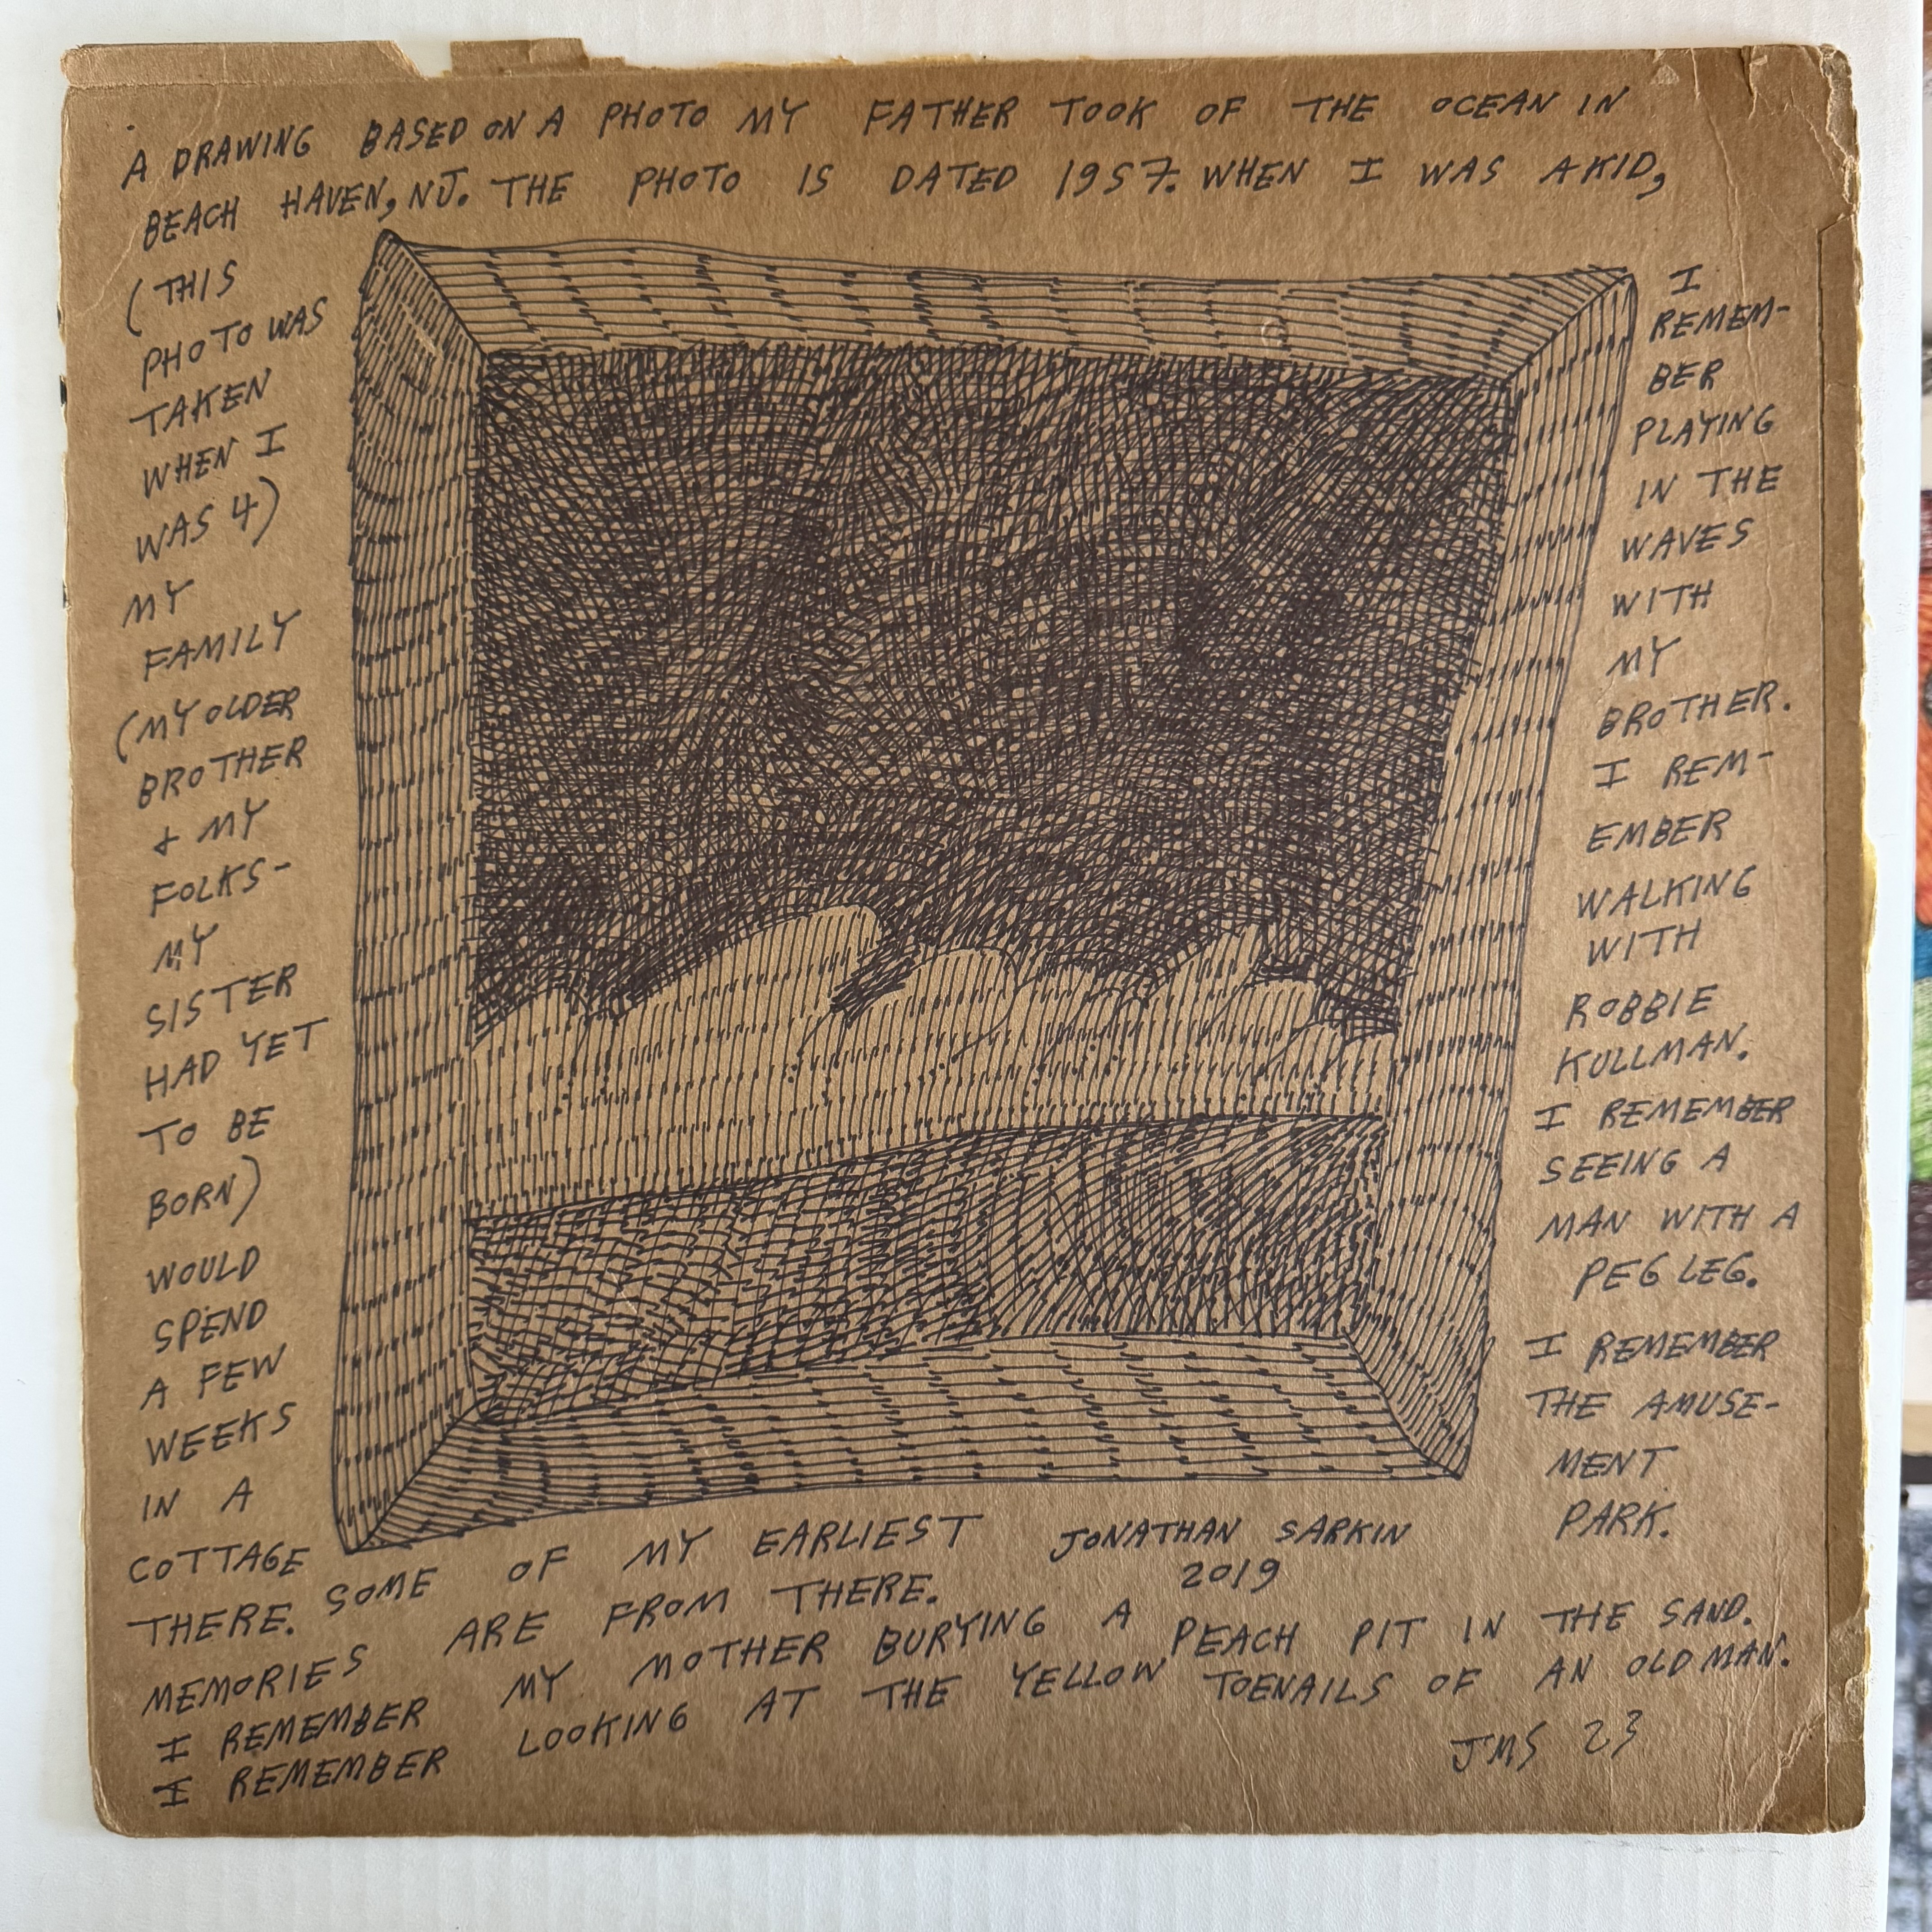 A DRAWING BASED ON A PHOTO MY FATHER TOOK OF THE OCEAN IN
BEACH HAVEN, NJ. THE PHOTO IS DATED 1957. WHEN I WAS A KID,
(THIS
PHOTO WAS
TAKEN
WHEN I
WAS 4)
MY
FAMILY
(MY OLDER
BROTHER
+ MY
FOLKS-
MY
SISTER
HAD YET
TO BE
BORN)
WOULD
SPEND
A FEW
WEEKS
IN A
COTTAGE
THERE. SOME OF MY EARLIEST
MEMORIES ARE FROM THERE.
I REMEMBER MY MOTHER BURYING A PEACH PIT IN THE SAND.
I REMEMBER LOOKING AT THE YELLOW TOENAILS OF AN OLD MAN.
I
REMEM-
BER
PLAYING
IN THE
WAVES
WITH
MY
BROTHER.
I REM-
EMBER
WALKING
WITH
ROBBIE
KULLMAN.
I REMEMBER
SEEING A
MAN WITH A
PEG LEG.
I REMEMBER
THE AMUSE-
MENT
PARK.
JONATHAN SARKIN
2019
JMS 23